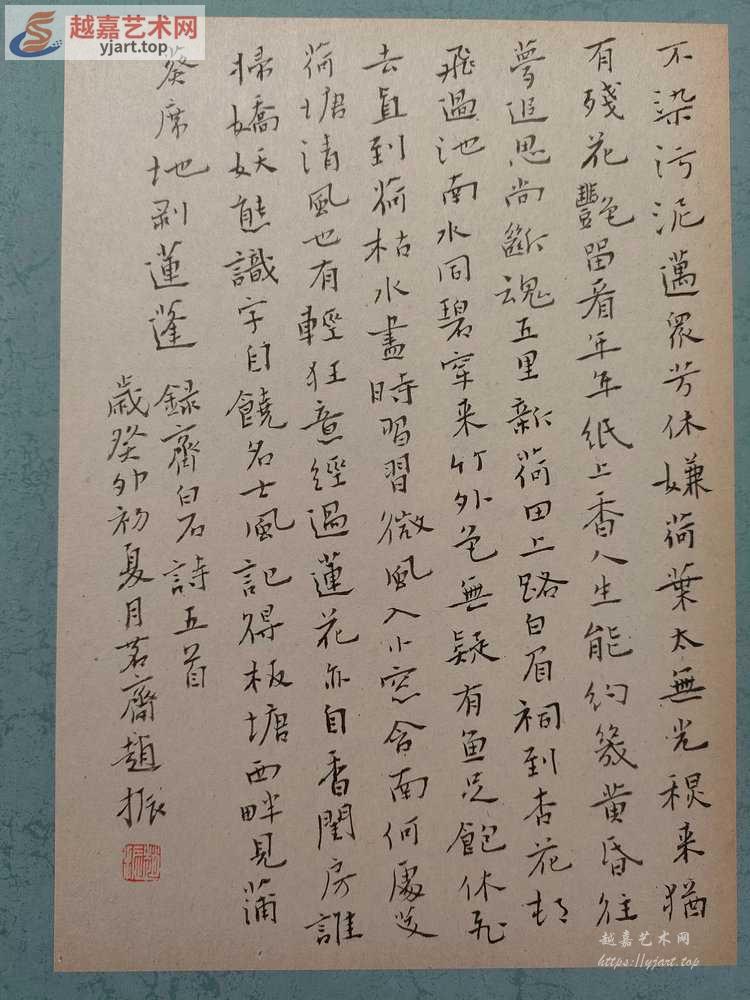 越嘉艺术网
yjart.top
不染污泥邁眾芳休嫌荷葉太無光来猶
有殘花豔留看年年紙上香人生能約幾黄昏往
夢追思尚斷魂五里新荷田上路白眉祠到杏花村
飛過池南水同碧穿来竹外色無疑有魚足飽休飛
去直到荷枯水盡時習習微風入小窓舍南何處芰
荷塘清風也有輕狂意經過蓮花亦自香閨房誰
掃嬌妖態識字自饒名士風記得板塘西畔見蒲
葵席地剥蓮蓬 録齊白石詩五首
歲癸卯初夏月茗齋趙振
越嘉艺术网
https://yjart.top